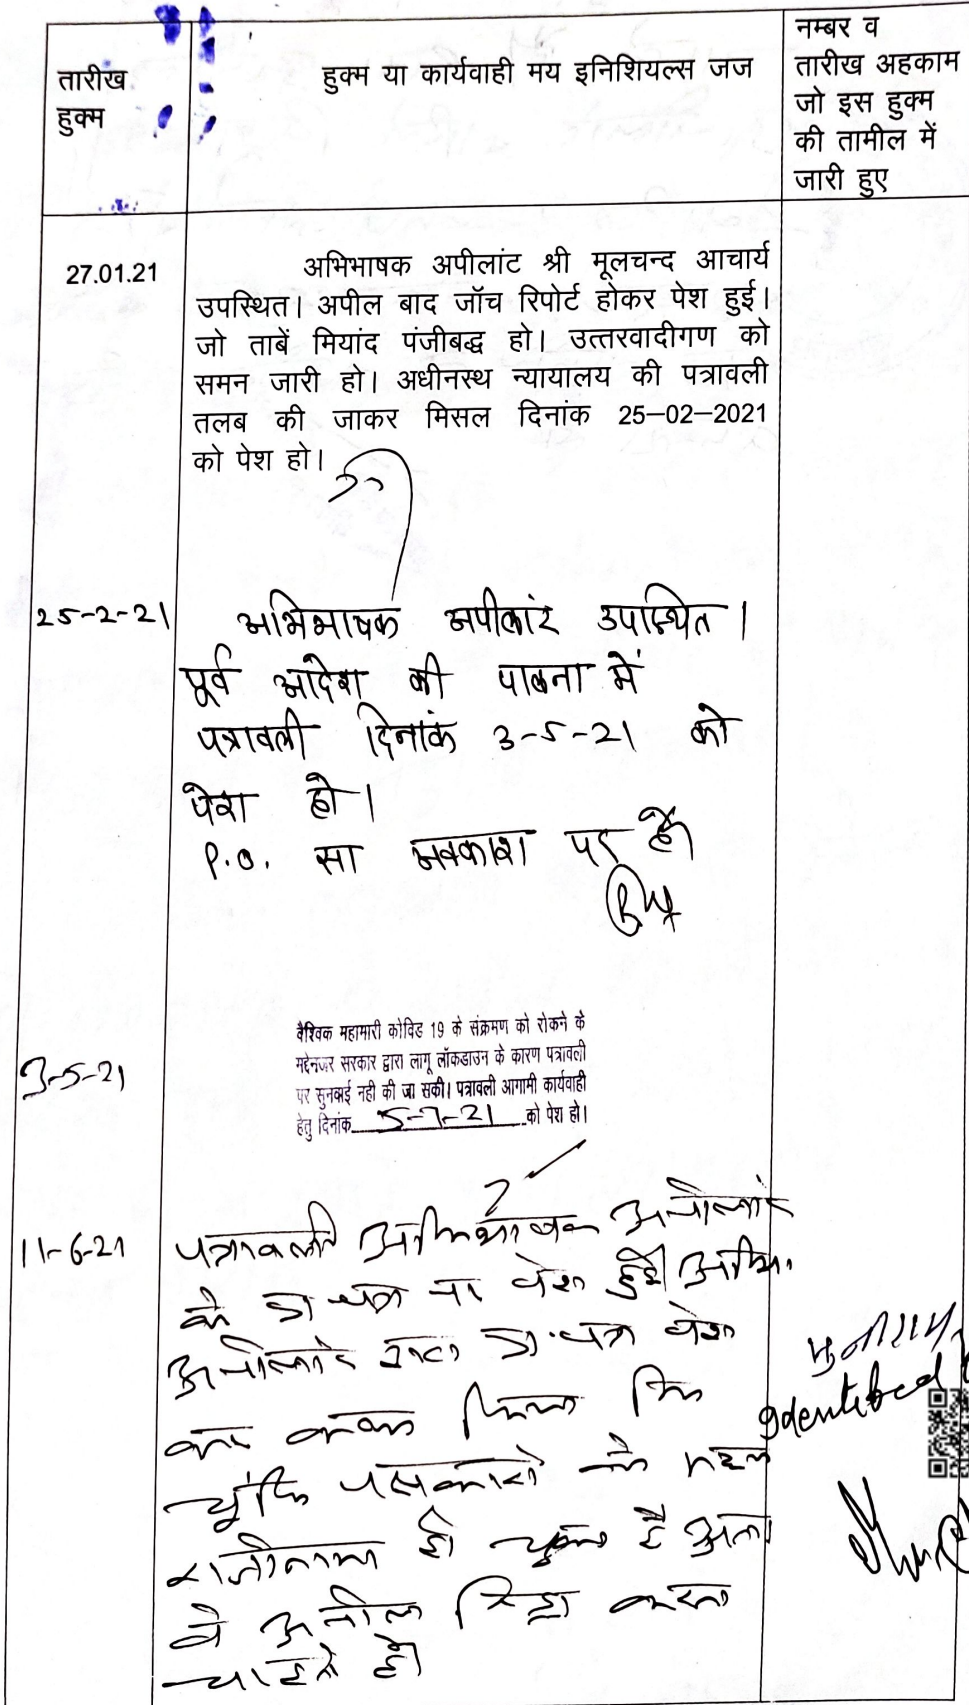 तारीख
हुक्म
हुक्म या कार्यवाही मय इनिशियल्स जज
नम्बर व
तारीख अहकाम
जो इस हुक्म
की तामील में
जारी हुए
27.01.21
अभिभाषक अपीलांट श्री मूलचन्द आचार्य
उपस्थित। अपील बाद जॉच रिपोर्ट होकर पेश हुई।
जो ताबें मियांद पंजीबद्ध हो। उत्तरवादीगण को
समन जारी हो। अधीनस्थ न्यायालय की पत्रावली
तलब की जाकर मिसल दिनांक 25–02–2021
को पेश हो।
25-2-21
अभिभाषक अपीलांट उपस्थित।
पूर्व आदेश की पालना में
पत्रावली दिनांक 3-5-21 को
पेश हो।
P.O. सा अवकाश पर है
3-5-21
वैश्विक महामारी कोविड 19 के संक्रमण को रोकने के
मद्देनजर सरकार द्वारा लागू लॉकडाउन के कारण पत्रावली
पर सुनवाई नही की जा सकी। पत्रावली आगामी कार्यवाही
हेतु दिनांक 5-7-21 को पेश हो।
11-6-21
पत्रावली अभिभाषक अपीलांट
के प्रा पत्र पर पेश हुई अभि.
अपीलांट द्वारा प्रा.पत्र पेश
कर किया कि
चूंकि पक्षकारो के मध्य
राजीनामा हो चुका है अतः
वे अपील विड्रा करना
चाहते है।
Identified